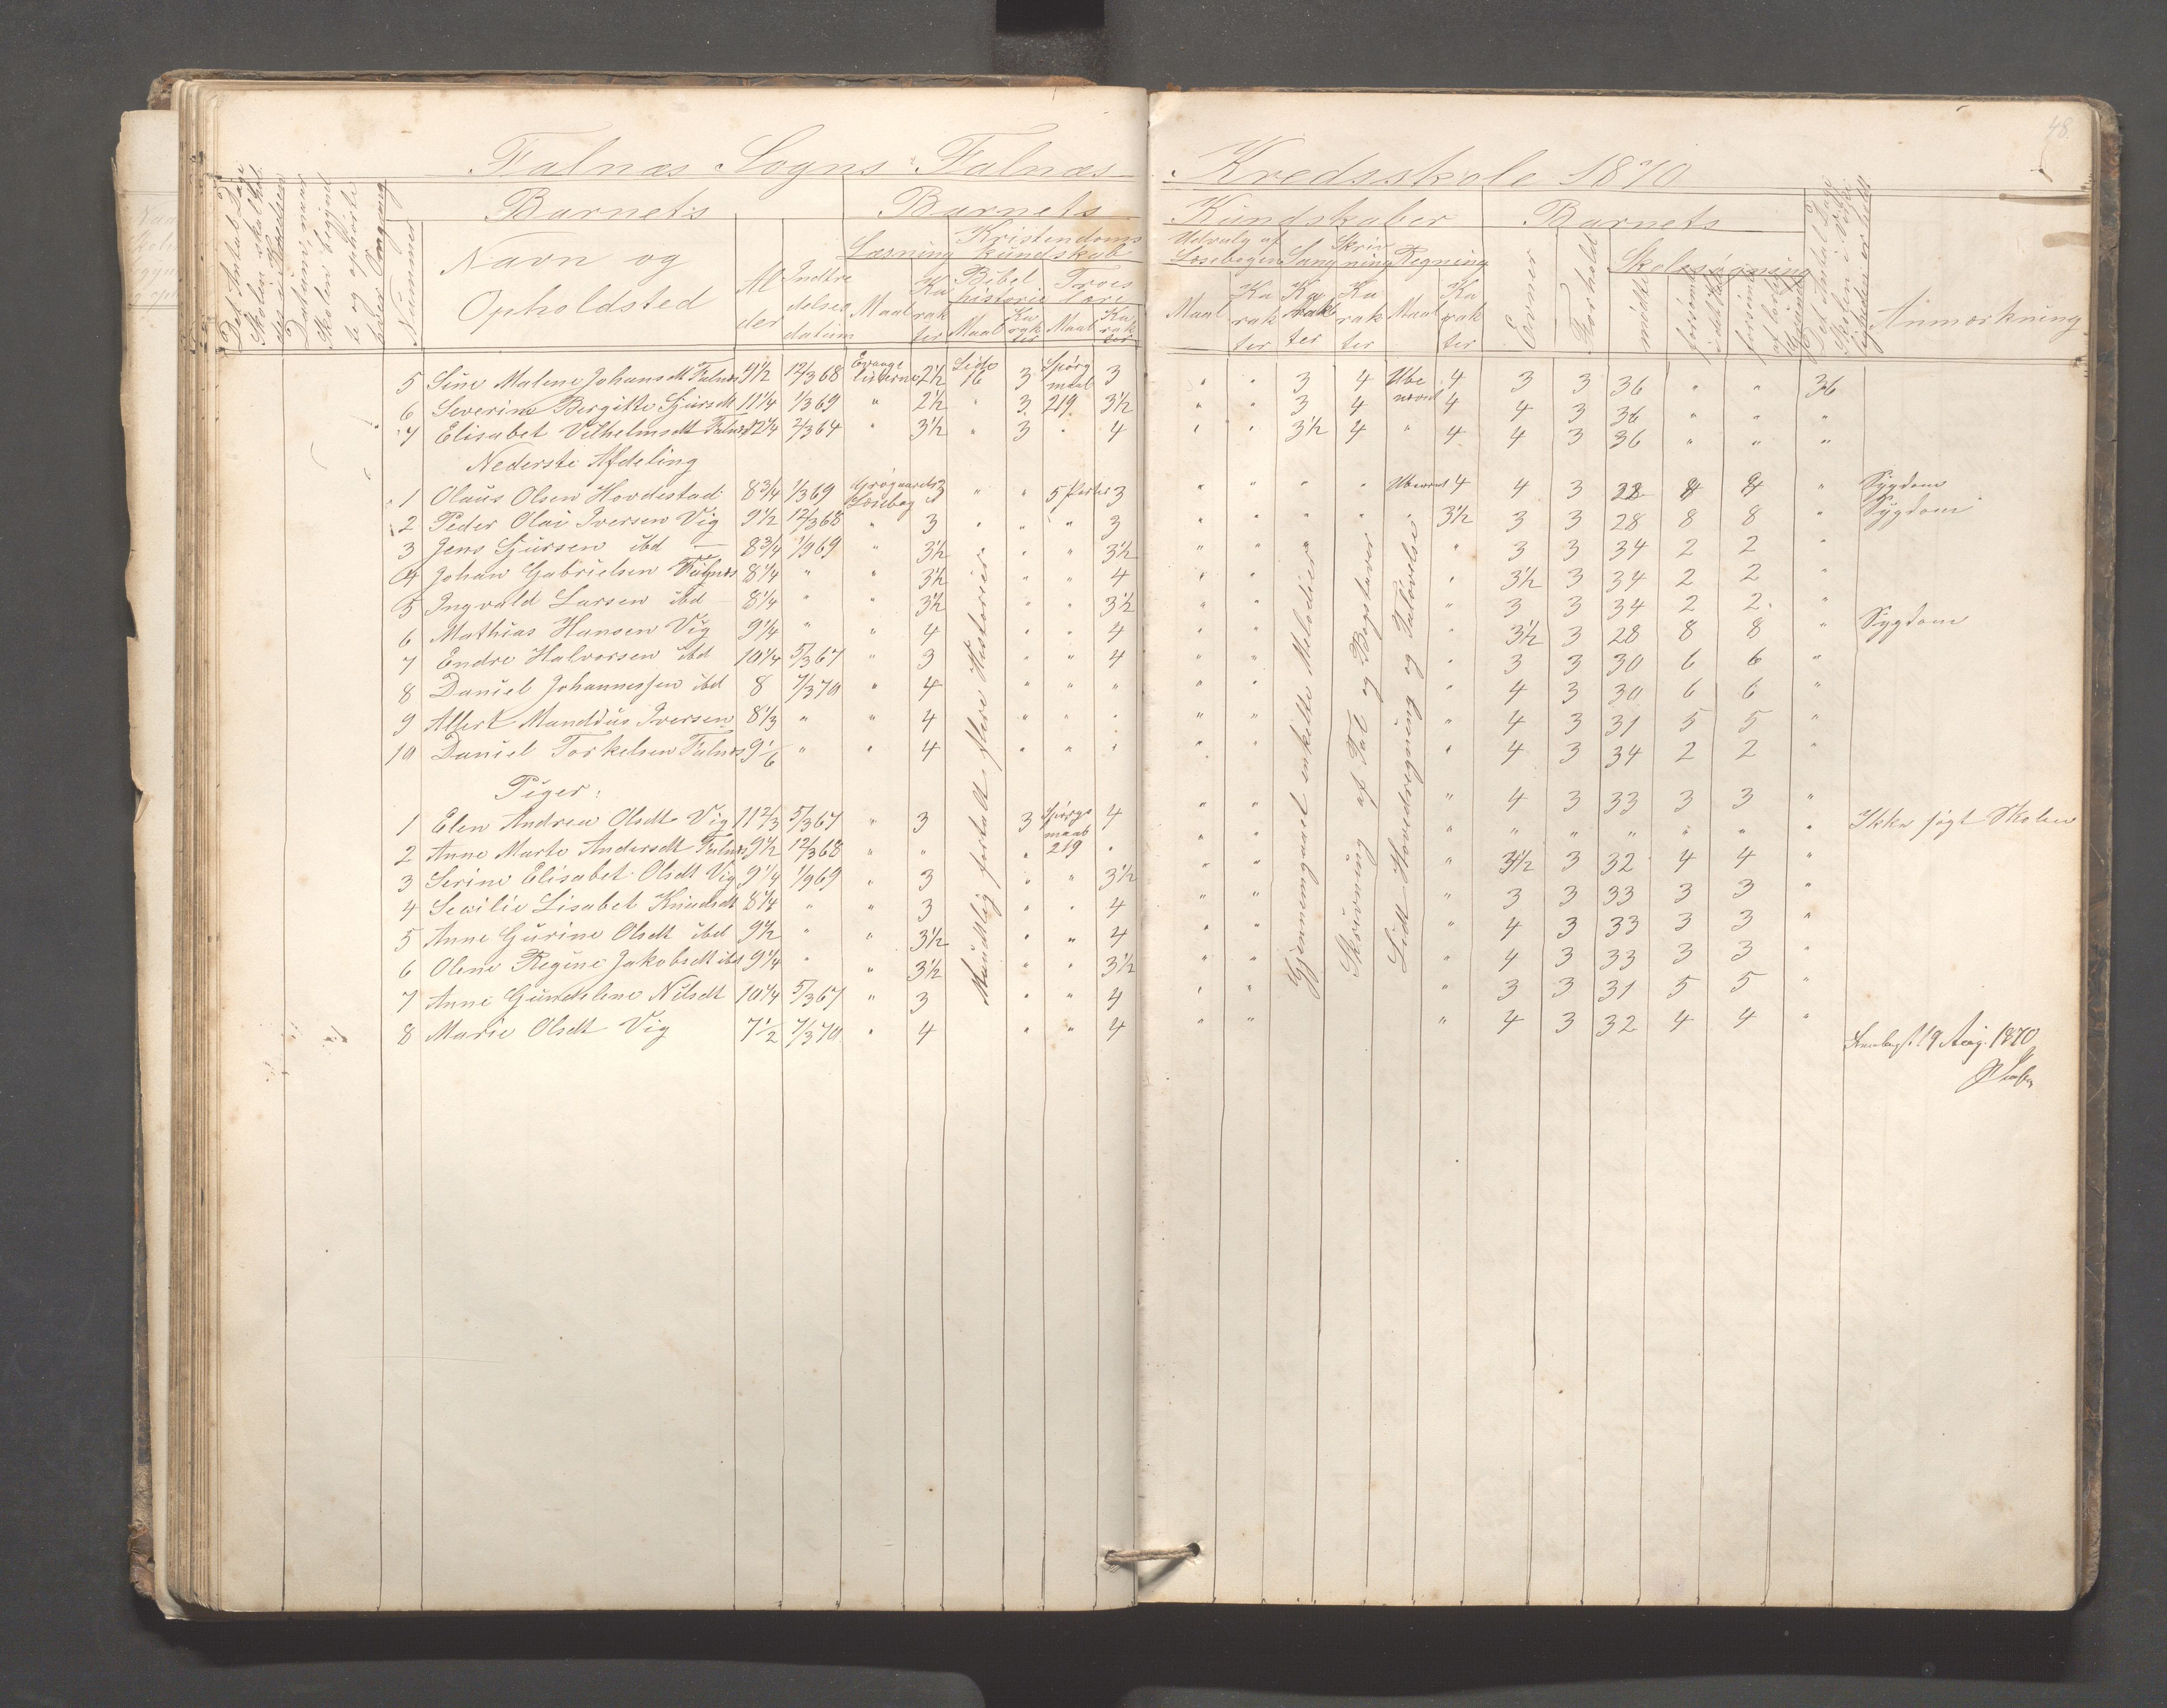 48.
Falnæs Sogns Falnæs Kredsskole 1870
Det Antal Dage Skolen skal holdes i Kredsen
Datum, naar Skolen begyndte og ophørte hver Omgang
Nummer
Barnets
Navn og Opholdsted
Alder
Indtrædelsesdatum
Barnets Kundskaber
Læsning
Maal
Karakter
Kristendomskundskab
Bibelhistorie
Maal
Karakter
Troeslære
Maal
Karakter
Udvalg af Læsebogen
Maal
Karakter
Sang
Karakter
Skrivning
Karakter
Regning
Maal
Karakter
Barnets
Evner
Forhold
Skolesøgning
mødte
forsømte i det hele
forsømte af lovlig Grund
Det Antal Dage Skolen i Virkeligheden er holdt
Anmærkning
5 Sine Malene Johansdt Falnæs 9 1/2 12/3 68 Evangelisterne 2 1/2 Side 16 3 Spørgmaal 3 " " 3 4 Ubenævnt 4 3 3 36 " " 36
6 Severine Bergitte Sjursdt 11 1/4 1/3 69 " 2 1/2 " 3 219 3 1/2 " " 3 4 4 4 3 36 " " "
7 Elisabet Vilhelmsdt Falnæs 12 1/4 2/3 64 " 3 1/2 " 3 " 4 " " 3 1/2 4 " 4 4 3 36 " " "
Nederste Afdeling
1 Olaus Olsen Hovdestad 8 3/4 1/3 69 Grøgaards Læsebog 3 " " 5 Parter 3 " " " " Ubenævnt 4 4 3 28 8 8 " Sygdom
2 Peder Olai Iversen Vig 9 1/2 12/3 68 " 3 " " " 3 " " " " " 3 1/2 3 3 28 8 8 " Sygdom
3 Jens Sjursen ibd 8 3/4 1/9 69 " 3 1/2 " " 3 1/2 " " " 3 3 34 2 2 "
4 Johan Gabrielsen Falnæs 8 1/4 " " 3 1/2 " " 4 " " " 3 1/2 3 34 2 2 "
5 Ingvald Larsen ibd 8 1/4 " " 3 1/2 " " 3 1/2 " " " 3 3 34 2 2 "
6 Mathias Hansen Vig 9 1/4 " " 4 " " 4 " " " 3 1/2 3 28 8 8 " Sygdom
7 Endre Halvorsen ibd 10 1/4 5/3 67 " 3 " " 4 " " " 3 3 30 6 6 "
8 Daniel Johannessen ibd 8 7/3 70 " 4 " " " " " " 4 3 30 6 6 "
9 Albert Manddus Iversen 8 1/3 " " 4 " " " " " " 4 3 31 5 5 "
10 Daniel Torkelsen Falnæs 9 1/6 " " 4 " " " " " " 4 3 34 2 2 "
Piger:
1 Elen Andrea Olsdt Vig 11 2/3 5/3 67 " 3 3 Spørgsmaal 219 4 " " " 4 3 33 3 3 "
2 Anne Marte Andersdt Falnæs 9 1/2 12/3 68 " " " " " " " " " " " " " Ikke søgt Skolen
3 Serine Elisabet Olsdt Vig 9 1/4 1/9 69 " 3 " " 3 1/2 " " " 3 1/2 3 32 4 4 "
4 Secilie Lisabet Knudsdt 8 1/4 " " 3 " " 4 " " " 3 3 33 3 3 "
5 Anne Gurine Olsdt ibd 9 1/2 " " 3 1/2 " " 4 " " " 4 3 33 3 3 "
6 Olene Regine Jakobsdt ibd 9 1/4 " " 3 1/2 " " 3 1/2 " " " 4 3 33 3 3 "
7 Anne Gundelene Nilsdt 10 1/4 5/3 67 " 3 " " 4 " " " 3 3 31 5 5 "
8 Marie Olsdt Vig 7 1/2 7/3 70 " 4 " " 4 " " " 4 3 32 4 4 "
Mundtlig fortalt flere Historier
Gjennemgaaet enkelte Melodier
Skrivning af Tal og Bogstaver
Lidt Hovedregning og Taløvelse
19 Aug. 1870